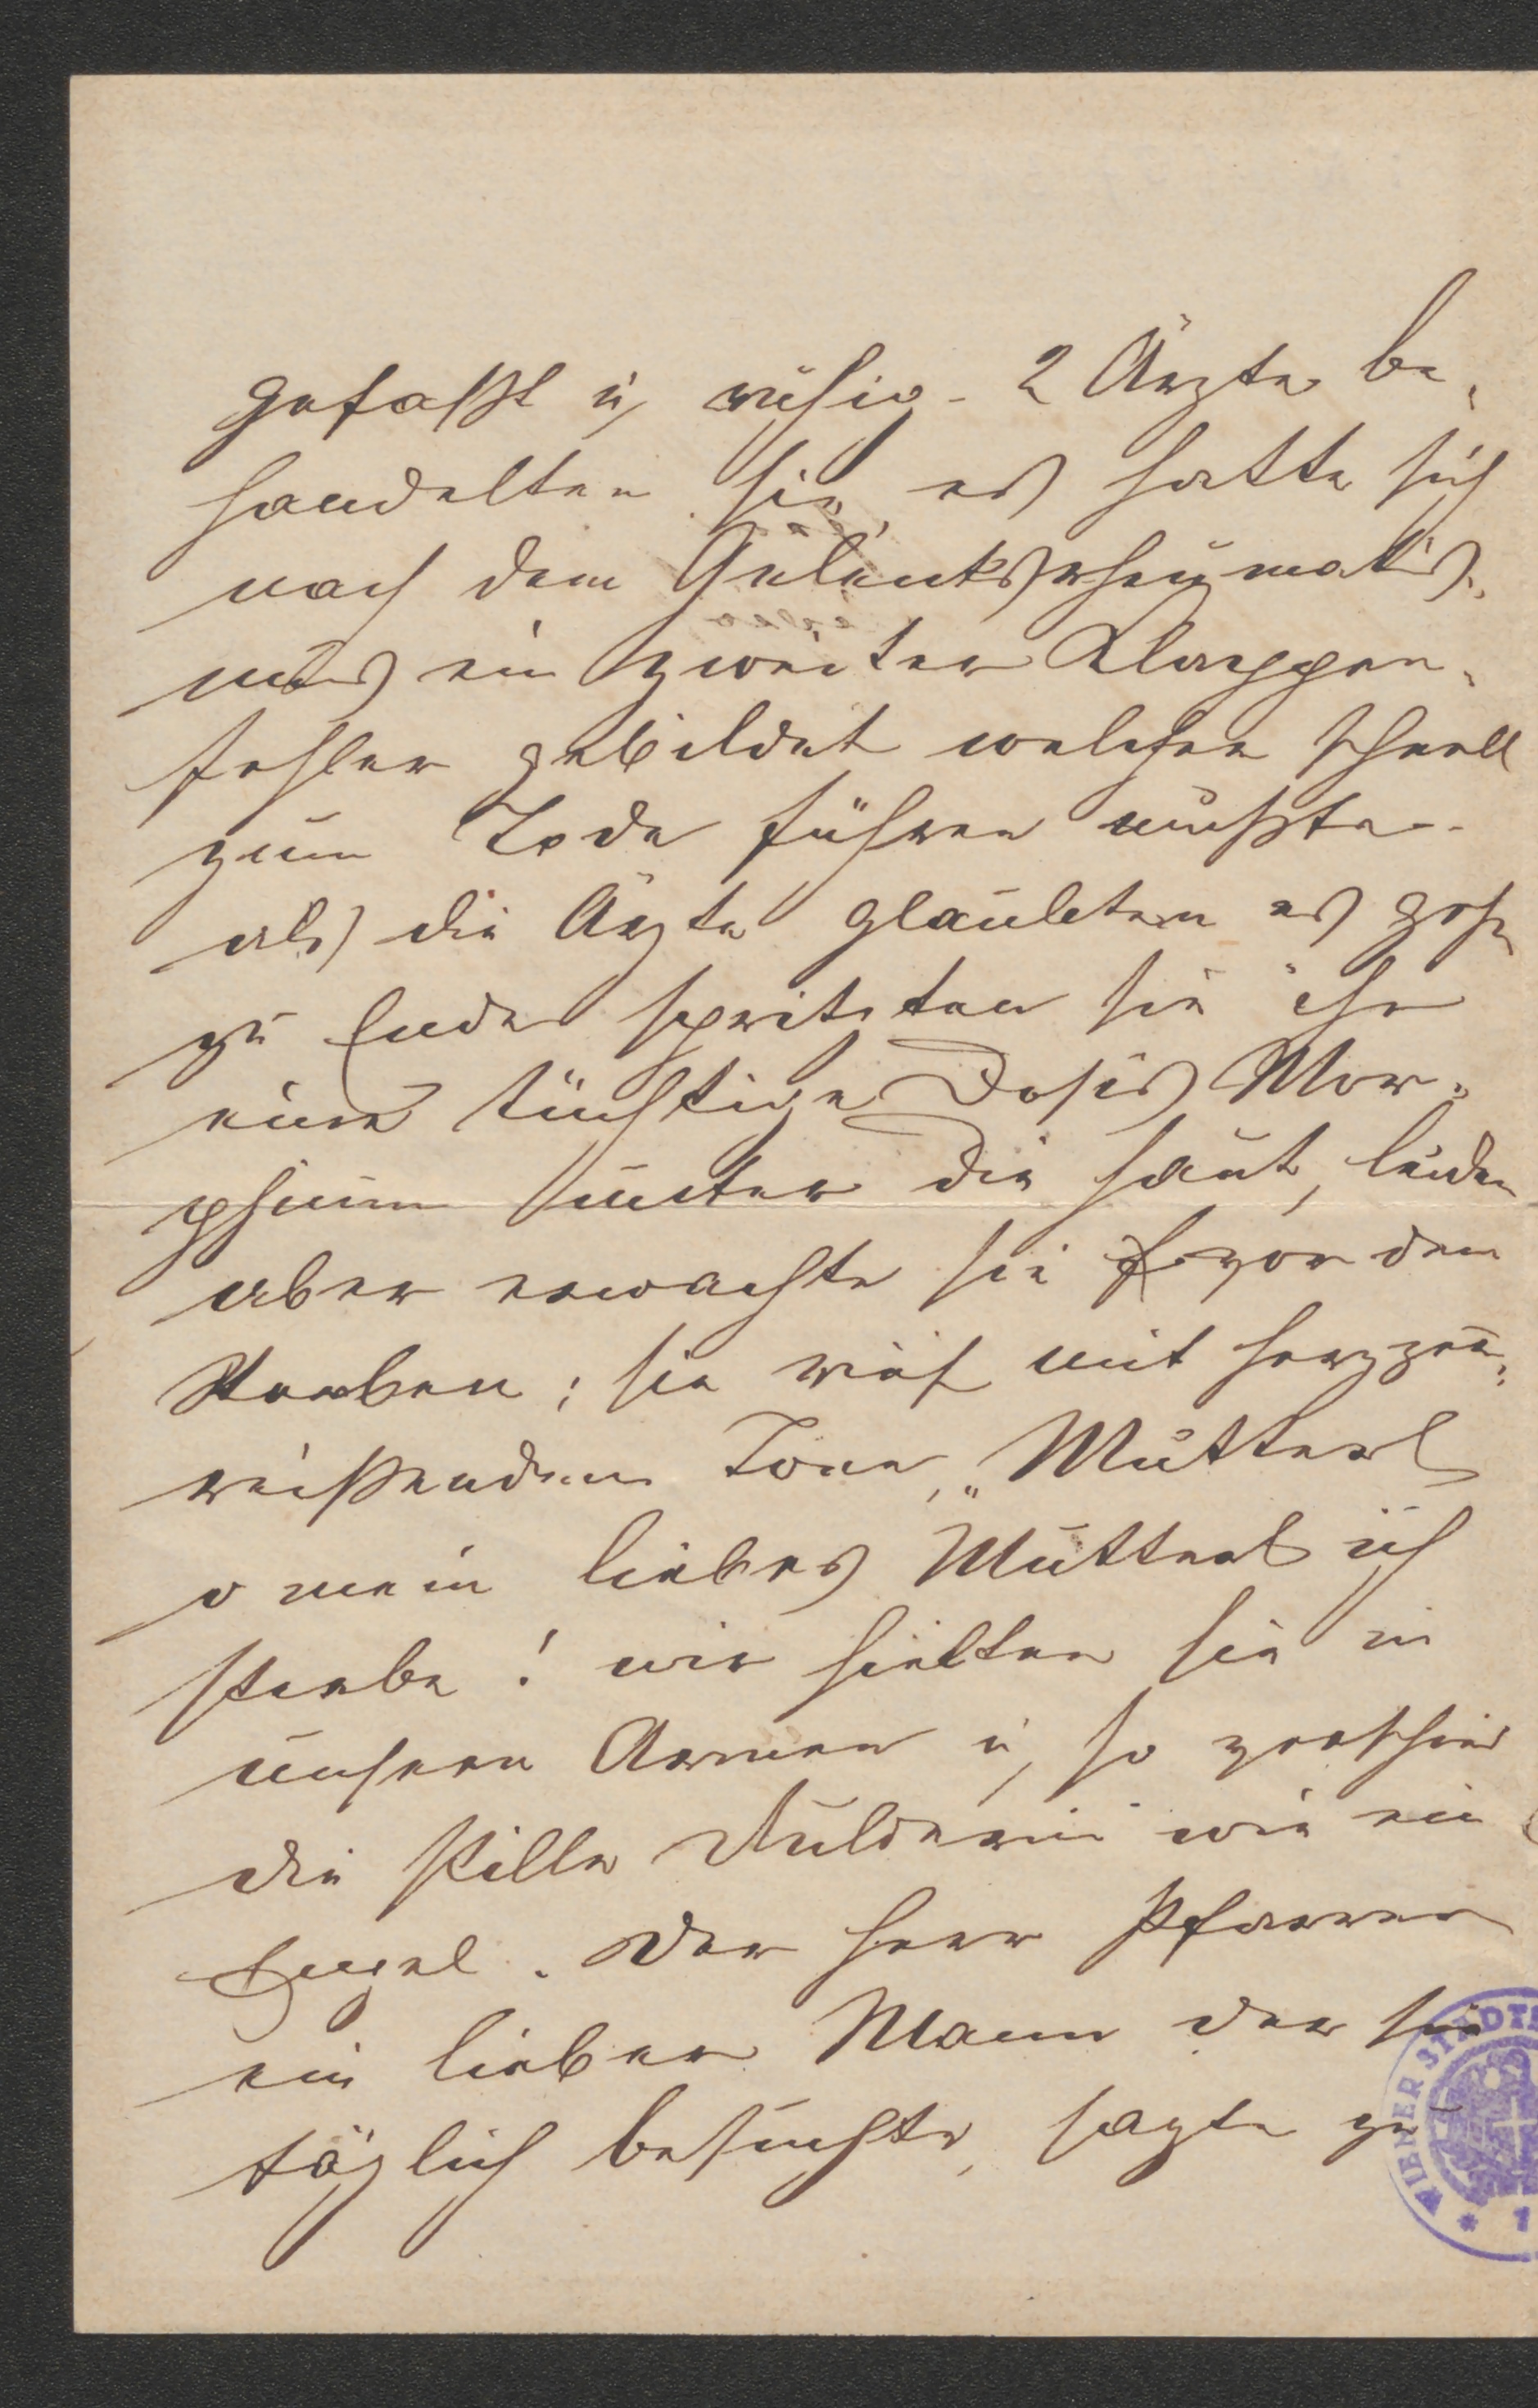 gefaßt u, ruhig - 2 Ärzte be,
handelten sie, es hatte sich
nach dem Gelenksrheumatis,
mus ein zweiter Klappen,
fehler gebildet welcher schnell
zum Tode führen mußte -
als die Ärzte glaubten es gehe
zu Ende spritzten sie ihr
eine tüchtige Dosis Mor,
phium unter die Haut, leider
aber erwachte sie vor dem
Sterben; sie rief mit herzzer,
reißendem Tone, „Mutterl
o mein liebes Mutterl ich
sterbe! wir hielten sie in
unseren Armen u, so verschied
die stille Dulderin wie ein
Engel. Der Herr Pfarrer
ein lieber Mann der sie
täglich besuchte, sagte zu
WIENER STÄDT
* 1